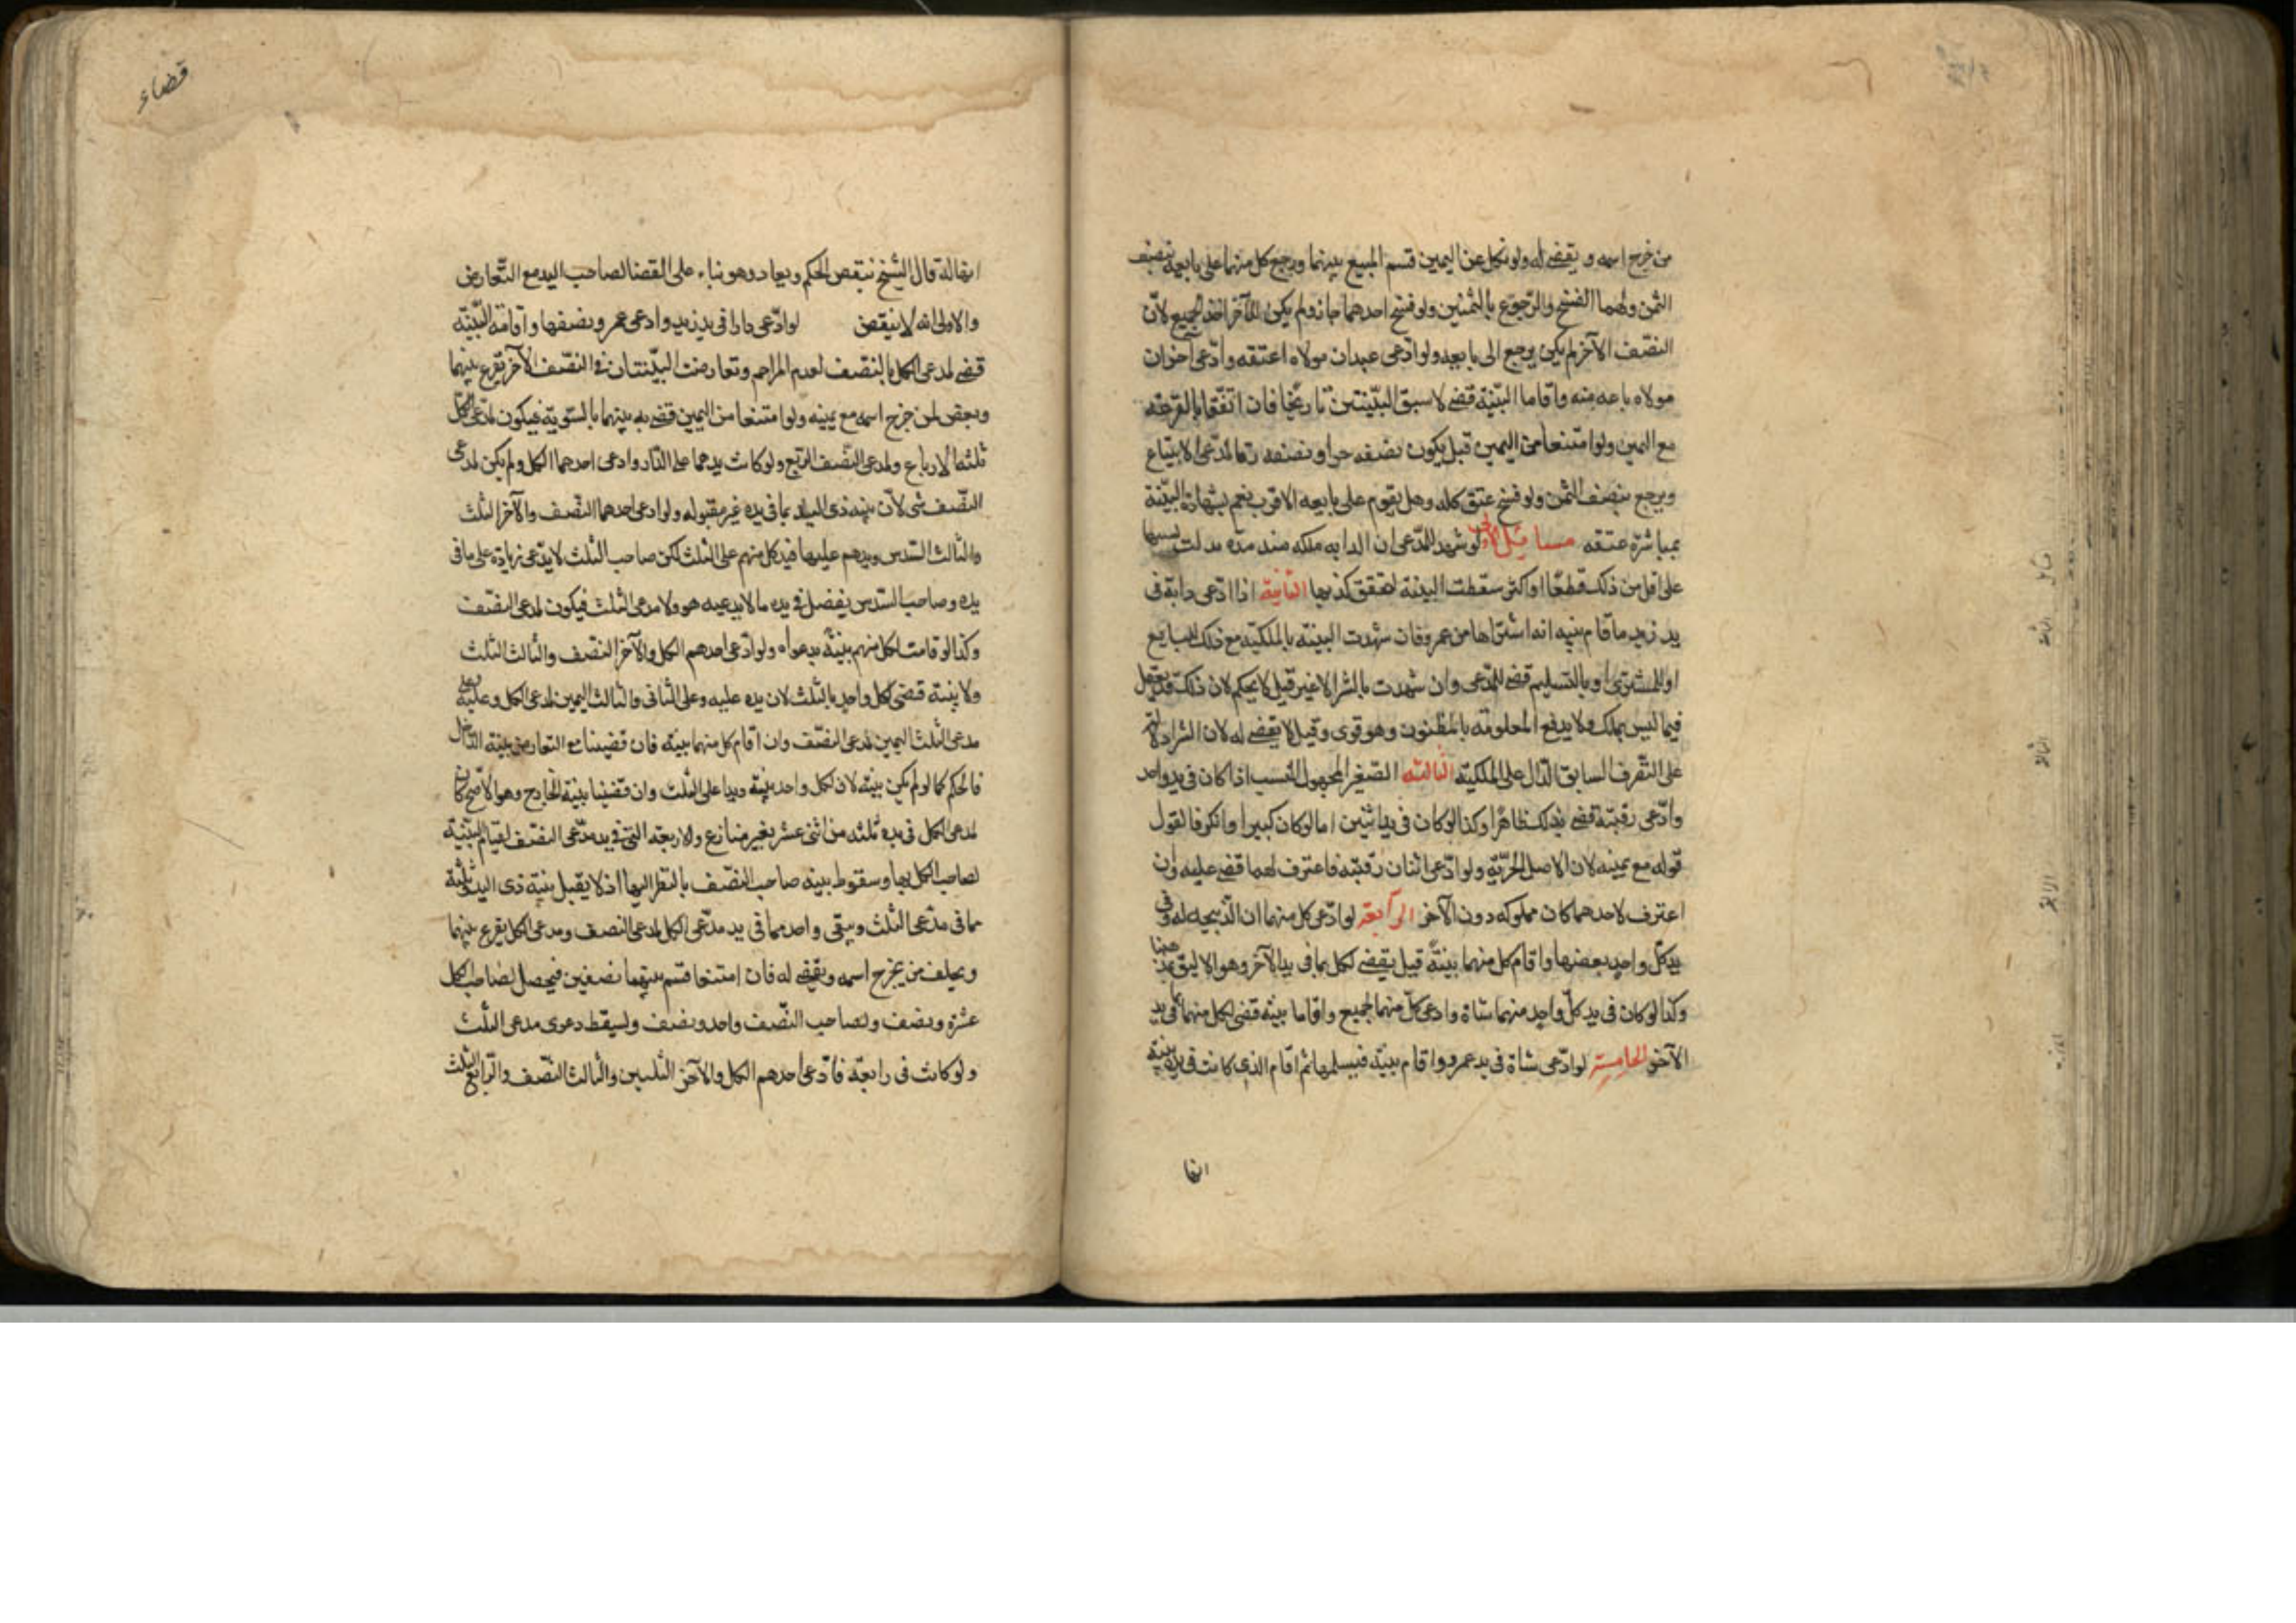 من خرج اسمه و يقضى له ولو نكل عن اليمين قسم المبيع بينهما ورجع كل منهما على بايعه بنصف
الثمن ولهما الفسخ والرجوع بالثمنين ولو فسخ احدهما جاز ولم يكن للآخر اخذ الجميع لأن
النصف الآخر لم يكن يرجع الى بايعه ولو ادّعى عبد ان مولاه اعتقه وادّعى آخر ان
مولاه باعه منه واقاما البيّنة قضى لاسبق البيّنتين تاريخا فان اتفقا بالقرعة
مع اليمين ولو امتنعا من اليمين قيل يكون نصفه حرا ونصفه رقا لمدعى الابتياع
ويرجع بنصف الثمن ولو فسخ عتق كله وهل يقوم على بايعه الاقرب نعم بشهادة البيّنة
بمباشرة عتقه مسايل الاولى لو شهد للمدّعى ان الدابه ملكه منذ مدة فدلت سنها
على اقل من ذلك قطعا او اكثر سقطت البينة لتحقق كذبها الثانية اذا ادّعى دابة فى
يد زيد فاقام بينه انه اشتراها من عمرو فان شهدت البينة بالملكيه مع ذلك للبايع
او للمشترى او بالتسليم قضى للمدعى وان شهدت بالشرا لا غير قيل لا يحكم لان ذلك قد يفعل
فيما ليس بملك ولا يدفع المعلومة بالمظنون وهو قوى وقيل يقضى له لان الشرا دلالة
على التصرف السابق الدّال على الملكية الثالثه الصغير المجهول النسب اذا كان فى يد واحد
وادّعى رقيته قضى بذلك ظاهرا وكذا لو كان فى يد اثنين اما لو كان كبيرا وانكر فالقول
قوله مع يمينه لان الاصل الحريّة ولو ادّعى اثنان رقيته فاعترف لهما قضى عليه وان
اعترف لاحدهما كان مملوكه دون الآخر الرابعة لو ادّعى كل منهما ان الذبيحة له وفى
يد كل واحد بعضها واقام كل منهما بينة قيل يقضى لكل بما فى يد الآخر وهو الاليق بمذهبنا
وكذا لو كان فى يد كلّ واحد منهما شاة وادعى كلّ منهما الجميع واقاما بينة قضى لكل منهما بما فى يد
الآخر الخامسة لو ادّعى شاة فى يد عمرو واقام بيّنة فيسلمها ثم اقام الذى كانت فى يده بينة
انها
قضاء
انها له قال الشيخ ينقض الحكم ويعاد وهو بناء على القضا لصاحب اليد مع التعارض
والاولى انه لا ينقض لو ادّعى دارا فى يد زيد وادعى عمرو نصفها واقاما البيّنة
قضى لمدعى الكل بالنصف لعدم المزاحم وتعارضت البيّنتان فى النصف الآخر يقرع بينهما
ويقضى لمن خرج اسمه مع يمينه ولو امتنعا من اليمين قضى به بينهما بالسّوية فيكون لمدّعى الكلّ
ثلثة الارباع ولمدعى النصف الربع ولو كانت يدهما على الدّار وادعى احدهما الكل ولم يكن لمدعى
النصف شى لأن بينه ذى اليد بما فى يده غير مقبوله ولو ادعى احدهما النصف والآخر الثلث
والثالث السّدس ويدهم عليها فيد كل منهم على الثلث لكن صاحب الثلث لا يدّعى زيادة على ما فى
يده وصاحب السّدس يفضل فى يده ما لا يدعيه هو ولا مدعى الثلث فيكون لمدعى النصف
وكذا لو قامت لكل منهم بينة بدعواه ولو ادّعى احدهم الكل والآخر النصف والثالث الثلث
ولا بينة قضى لكل واحد بالثلث لان يده عليه وعلى الثانى والثالث اليمين لمدعى الكل وعليه
مدعى الثلث اليمين لمدعى النصف وان اقام كل منهما بينه فان قضينا مع التعارض ببينة الداخل
فالحكم كما لو لم يكن بينة لان لكل واحد بينة ويدا على الثلث وان قضينا بينة الخارج وهو الاصح كان
لمدعى الكل فى يده ثلثه من اثنى عشر بغير منازع والاربعة التى فى يد مدّعى النصف لقيام البيّنة
لصاحب الكل بها وسقوط بينه صاحب النصف بالنظر اليها اذ لا يقبل بينة ذى اليد وثلثة
مما فى مدّعى الثلث ويبقى واحد مما فى يد مدّعى الكل لمدعى النصف ومدعى الكل يقرع بينهما
ويحلف من يخرج اسمه ويقضى له فان امتنعا قسم بينهما نصفين فيحصل لصاحب الكل
عشرة ونصف ولصاحب النّصف واحد ونصف ويسقط دعوى مدعى الثلث
ولو كانت فى رابعة فادّعى احدهم الكل والآخر الثلثين والثالث النّصف والرابع الثلث